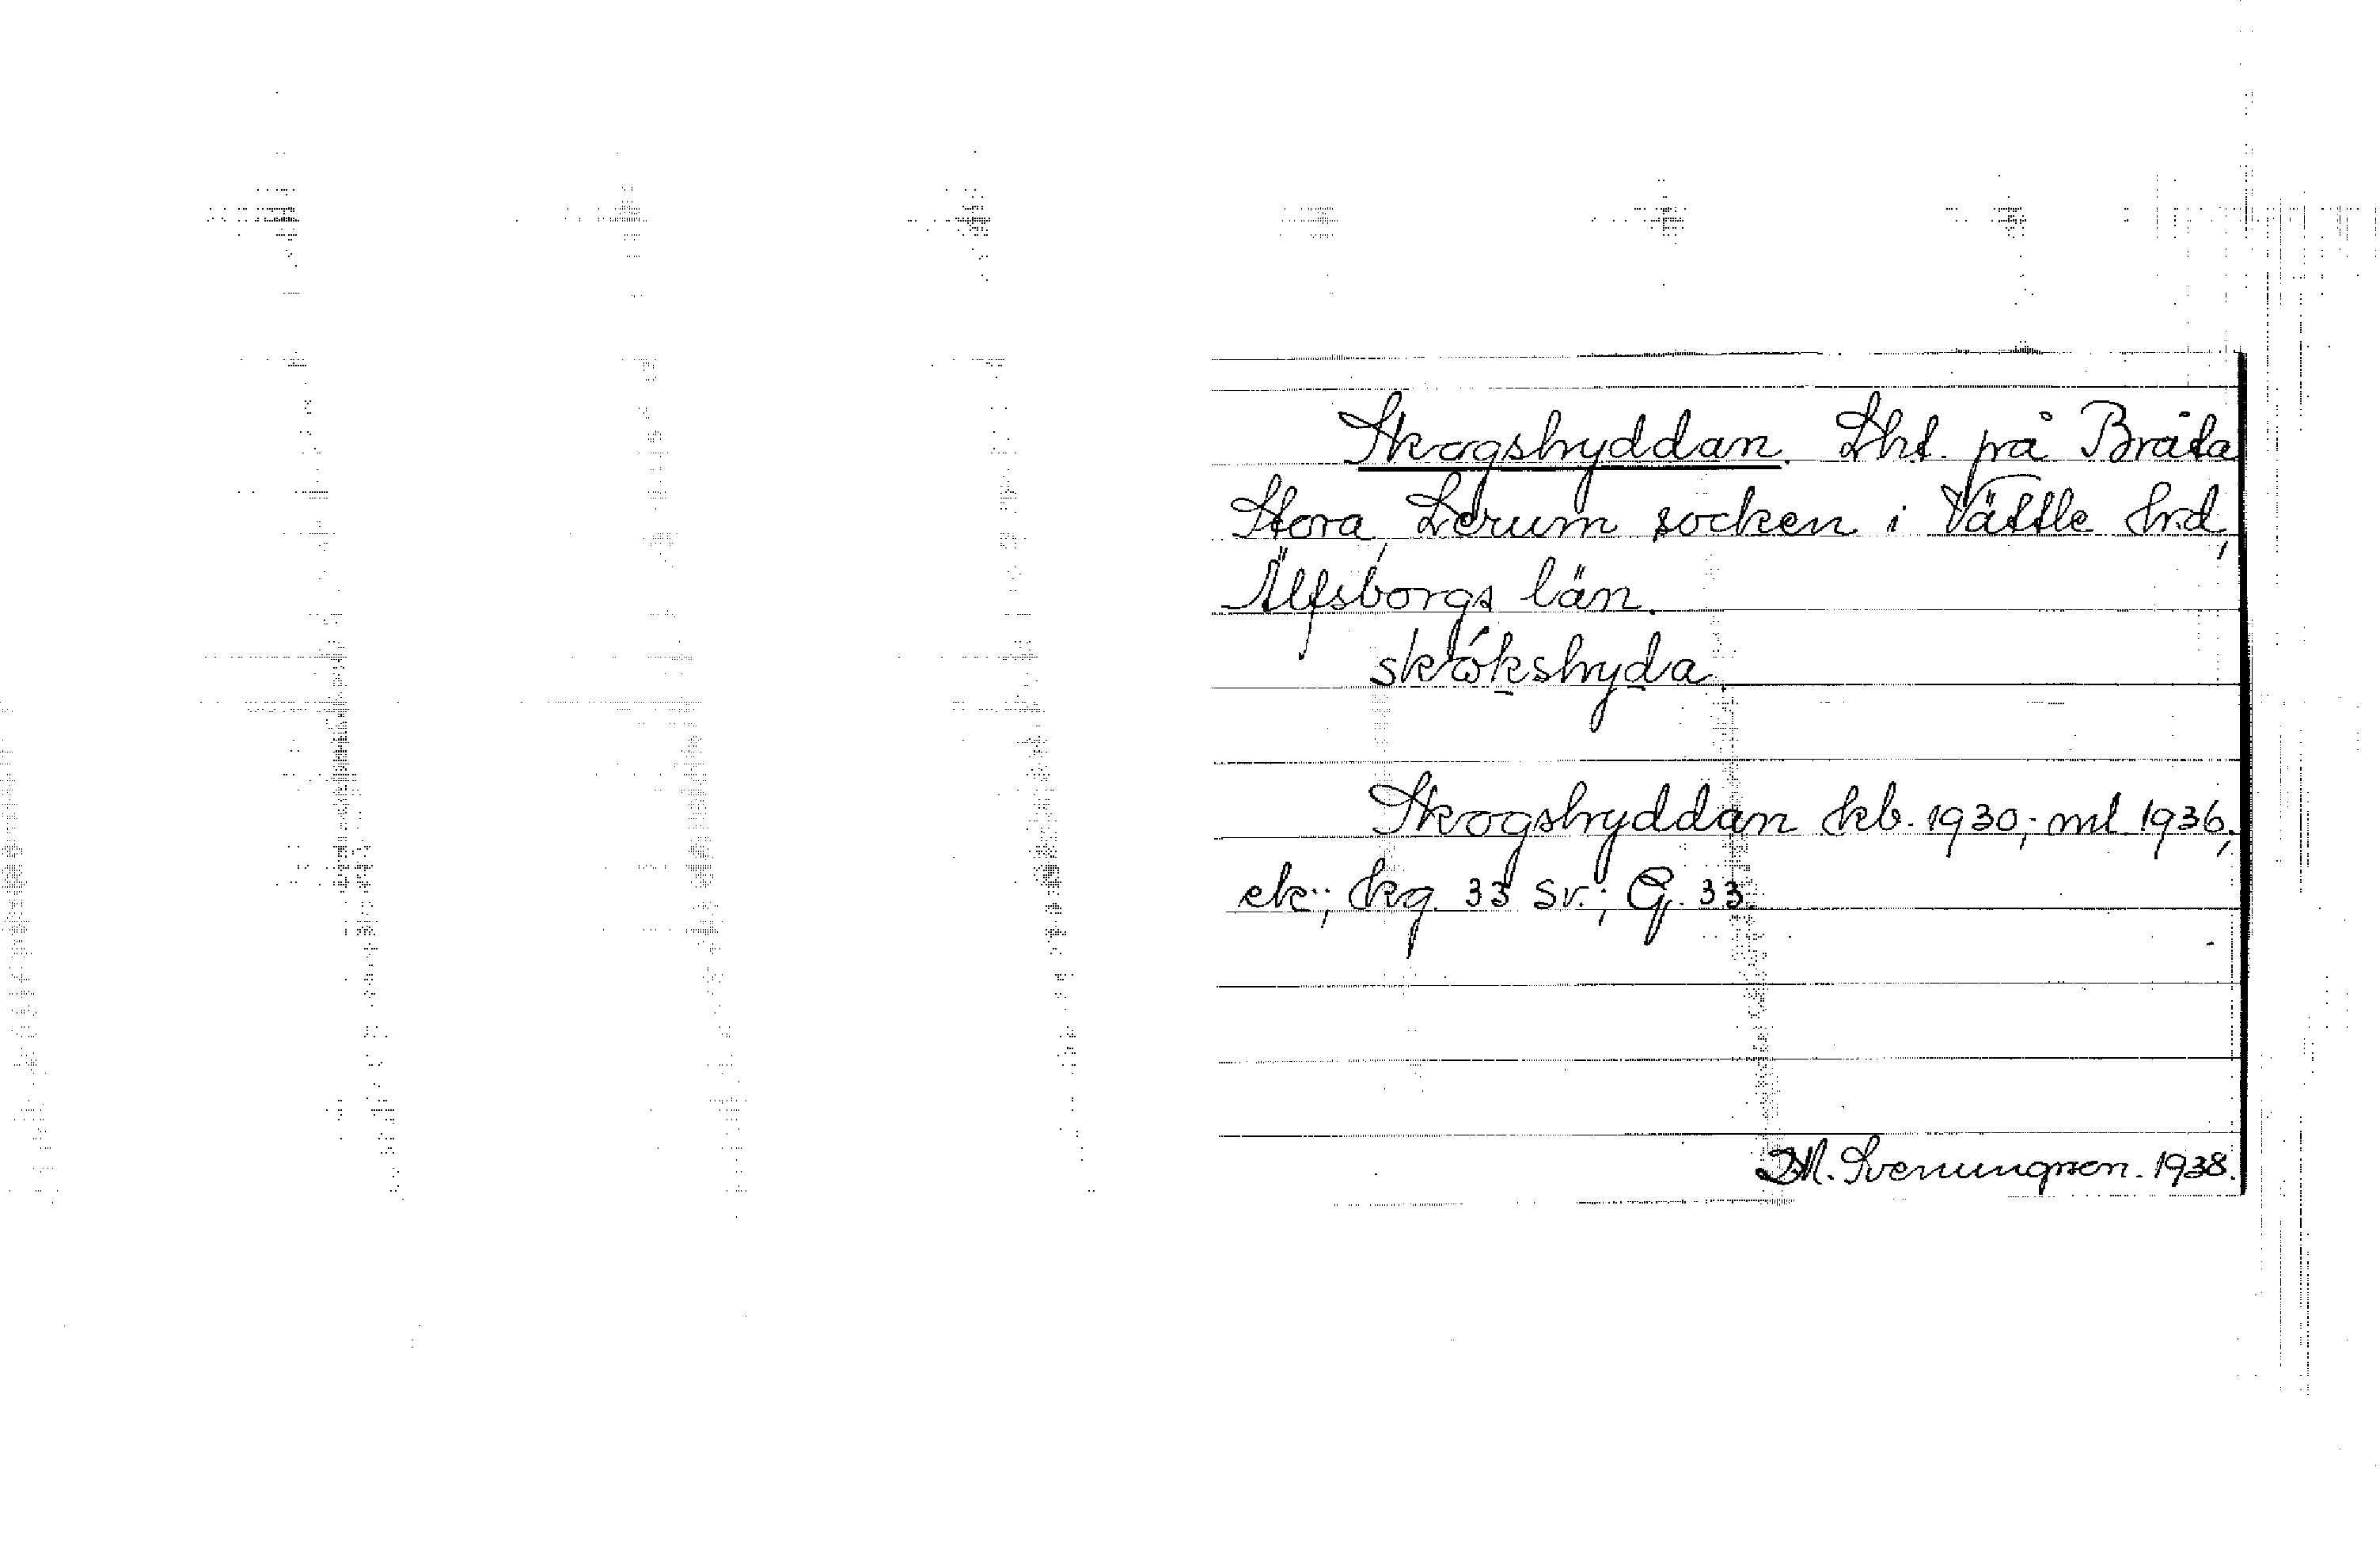 Skogshyddan. Lht. på Bråta
Stora Lerum socken i Vättle hrd,
Älfsborgs län.
skókshyda.
Skogshyddan kb. 1930; ml 1936,
ek; kg. 33 sv.; G. 33.
M. Svenungsson. 1938.